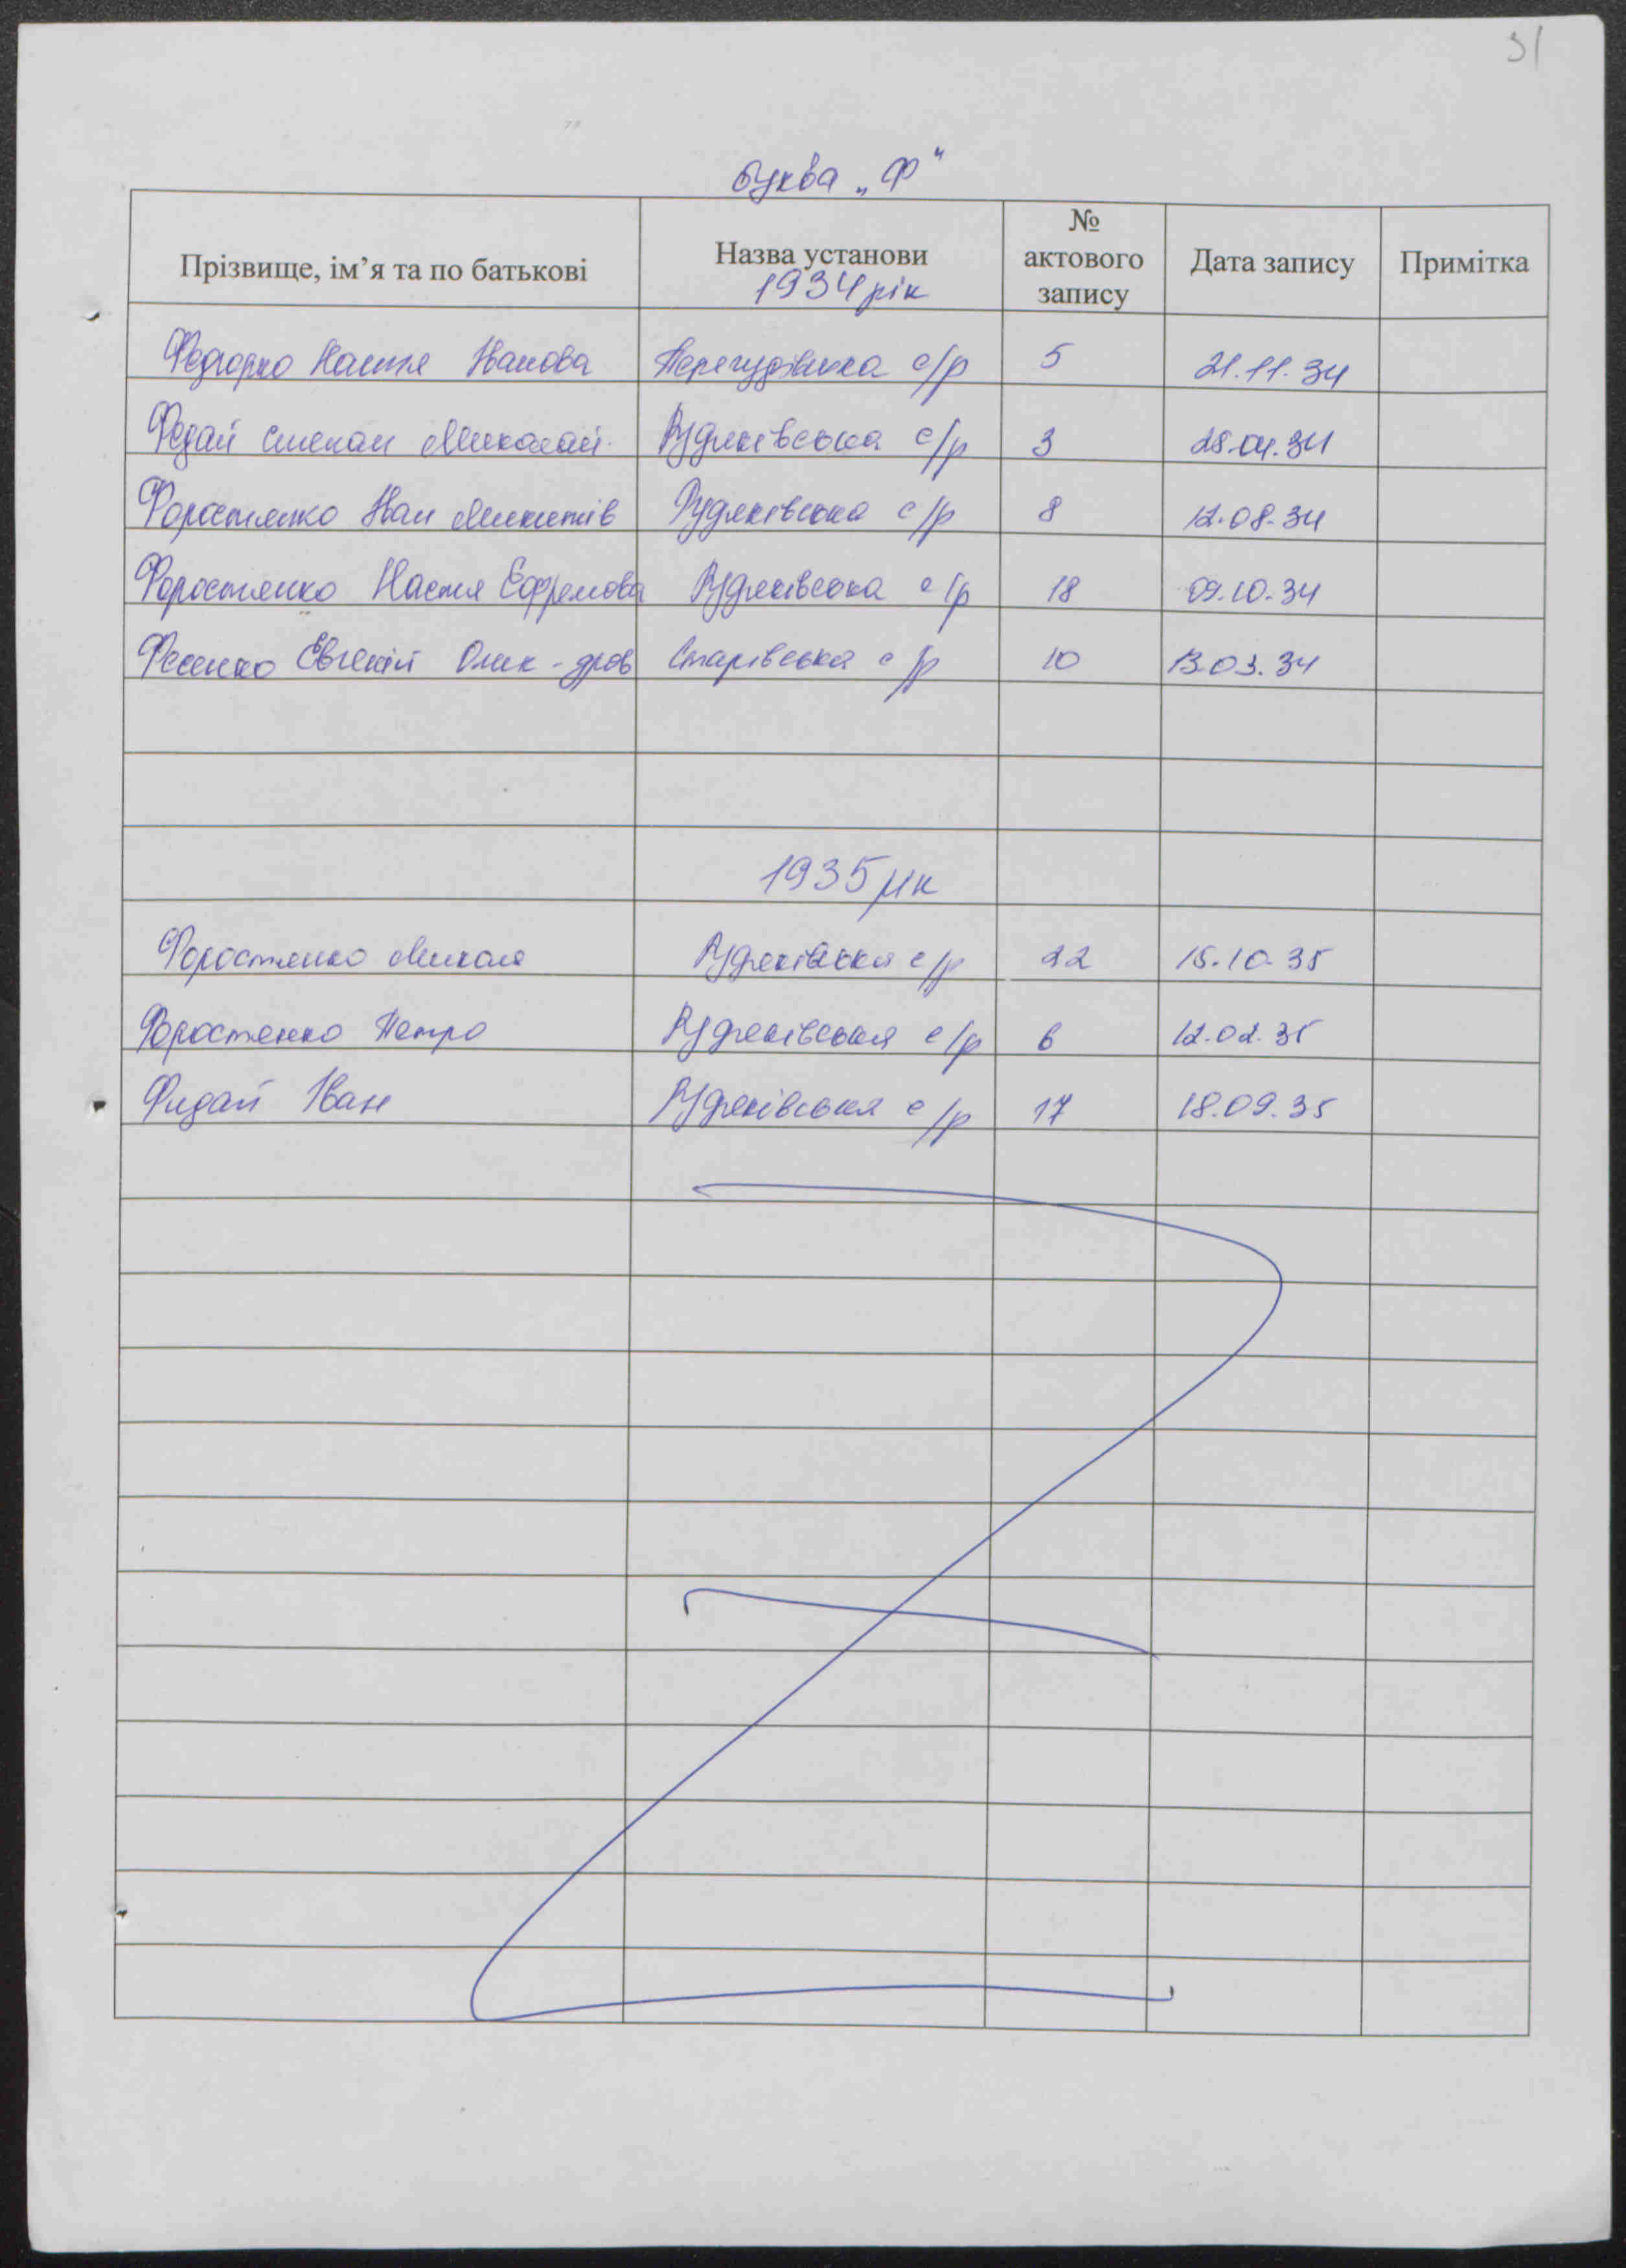 31
буква „Ф"
Прізвище, ім’я та по батькові Назва установи № актового запису Дата запису Примітка
1934 рік
Настя Іванова с/р 5 21.11.34
Федай Степан Миколай. Рудяківська с/р 3 28.04.34
Форостянко Іван Микитів Рудяківська с/р 8 12.08.34
Форостянко Настя Єфремова Рудяківська с/р 18 09.10.34
Фесенко Євгеній Олек-дров Старівська с/р 10 13.03.34
1935 рік
Форостянко Микола Рудяківська с/р 22 15.10.35
Форостенко Петро Рудяківська с/р 6 12.02.35
Фидай Іван Рудяківська с/р 17 18.09.35